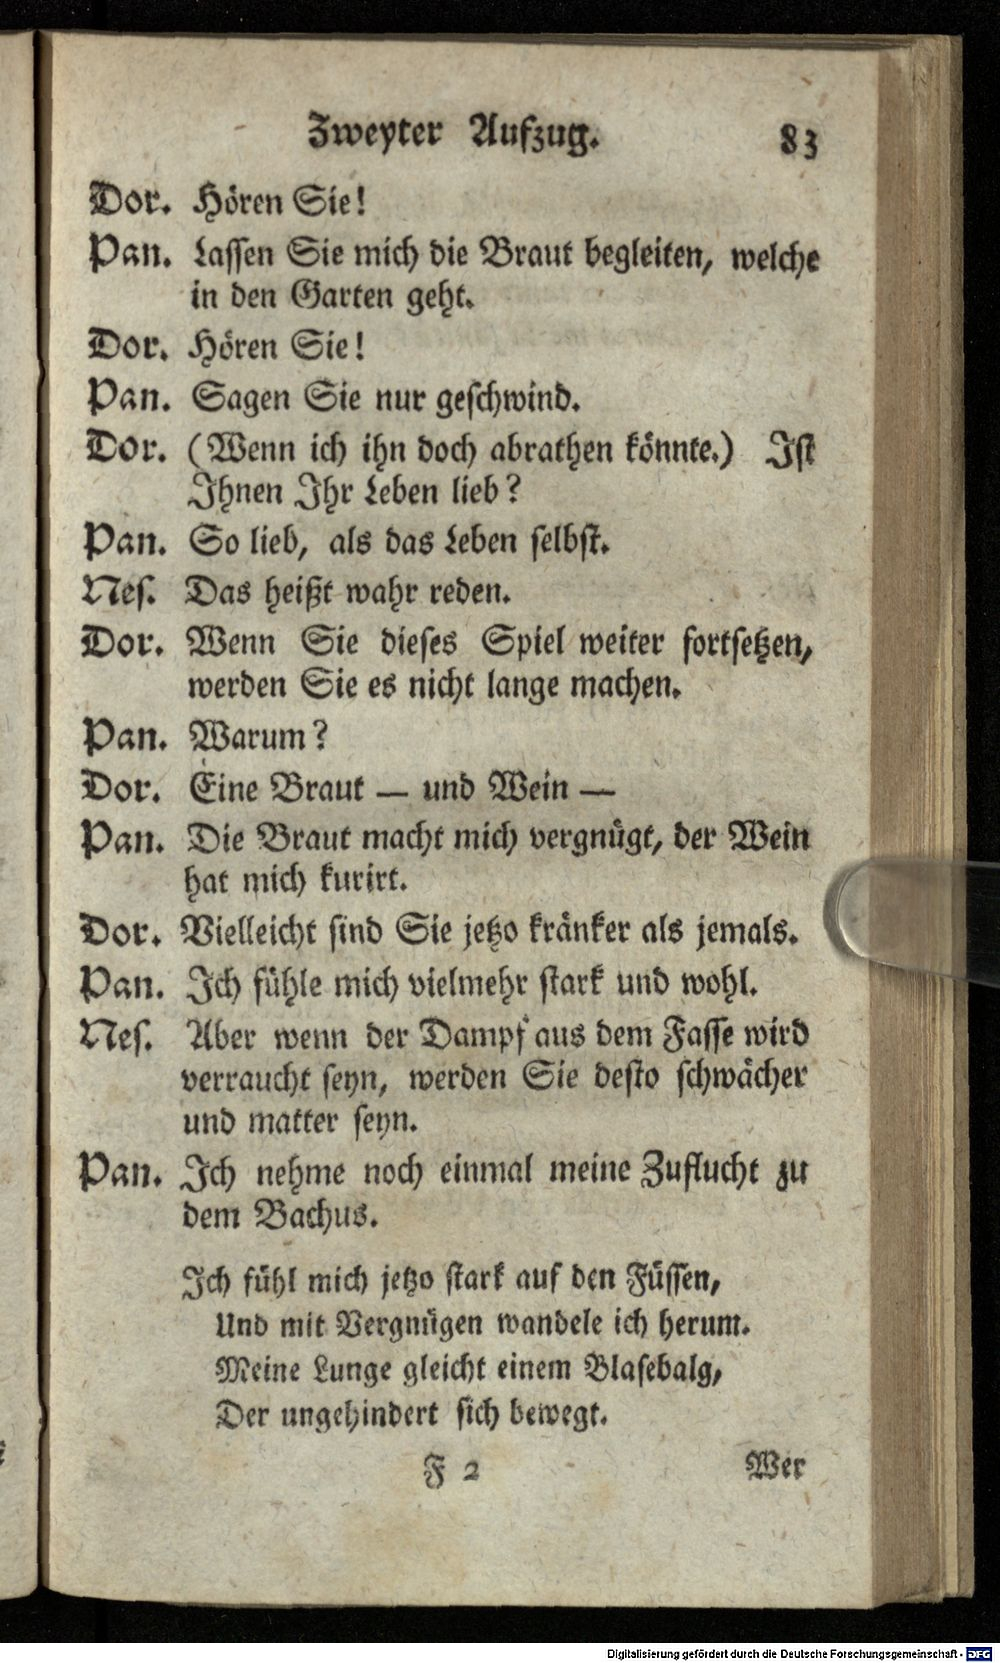 Zweyter Aufzug. 83
Dor. Hören Sie!
Pan. Lassen Sie mich die Braut begleiten, welche
in den Garten geht.
Dor. Hören Sie!
Pan. Sagen Sie nur geschwind.
Dor. (Wenn ich ihn doch abrathen könnte.) Ist
Ihnen Ihr Leben lieb?
Pan. So lieb, als das Leben selbst.
Nes. Das heißt wahr reden.
Dor. Wenn Sie dieses Spiel weiter fortsetzen,
werden Sie es nicht lange machen.
Pan. Warum?
Dor. Eine Braut — und Wein —
Pan. Die Braut macht mich vergnügt, der Wein
hat mich kurirt.
Dor. Vielleicht sind Sie jetzo kränker als jemals.
Pan. Ich fühle mich vielmehr stark und wohl.
Nes. Aber wenn der Dampf aus dem Fasse wird
verraucht seyn, werden Sie desto schwächer
und matter seyn.
Pan. Ich nehme noch einmal meine Zuflucht zu
dem Bachus.
Ich fühl mich jetzo stark auf den Füssen,
Und mit Vergnügen wandele ich herum.
Meine Lunge gleicht einem Blasebalg,
Der ungehindert sich bewegt.
F 2 Wer
Digitalisierung gefördert durch die Deutsche Forschungsgemeinschaft - DFG